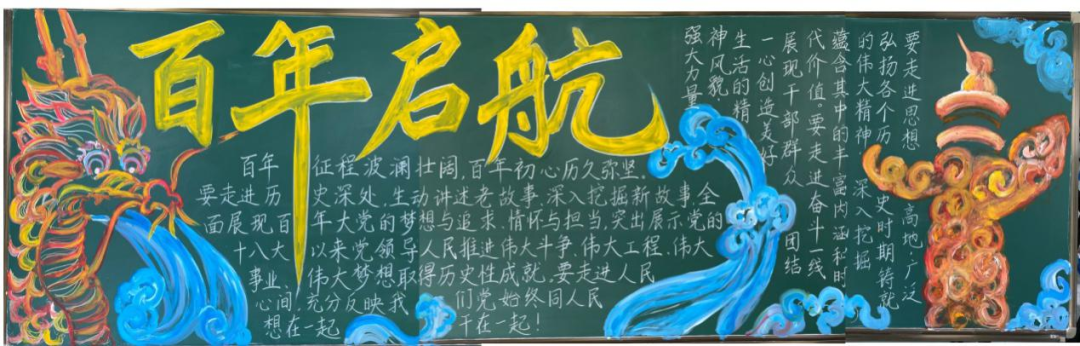 百年启航
百年 征程波澜壮阔,百年初心历久弥坚.
要走进历 史深处,生动讲述老故事,深入挖掘新故事,全
面展现百 年大党的梦想与追求、情怀与担当,突出展示党的
十八大 以来党领导人民推进伟大斗争、伟大工程、伟大
事业、 伟大梦想取得历史性成就,要走进人民
心间,充分反映我 们党始终同人民
想在一起 干在一起!
要走进思想高地,广泛
弘扬各个历史时期铸就
的伟大精神,深入挖掘
蕴含其中的丰富内涵和时
代价值。要走进奋斗一线
展现干部群众团结
一心创造美好
生活的精
神风貌、
强大力量